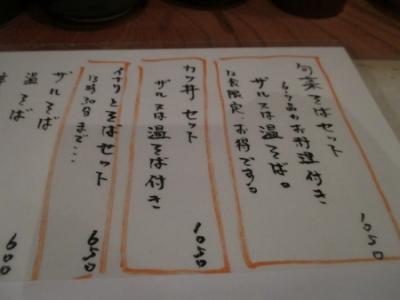 旬菜そばセット
6〜7品のお料理付き
ザル又は温そば。
12食限定、お得です。
1050
カツ丼セット
ザル又は温そば付き
1050
イナリとそばセット
13時30分まで…
650
ザルそば
温そば
600